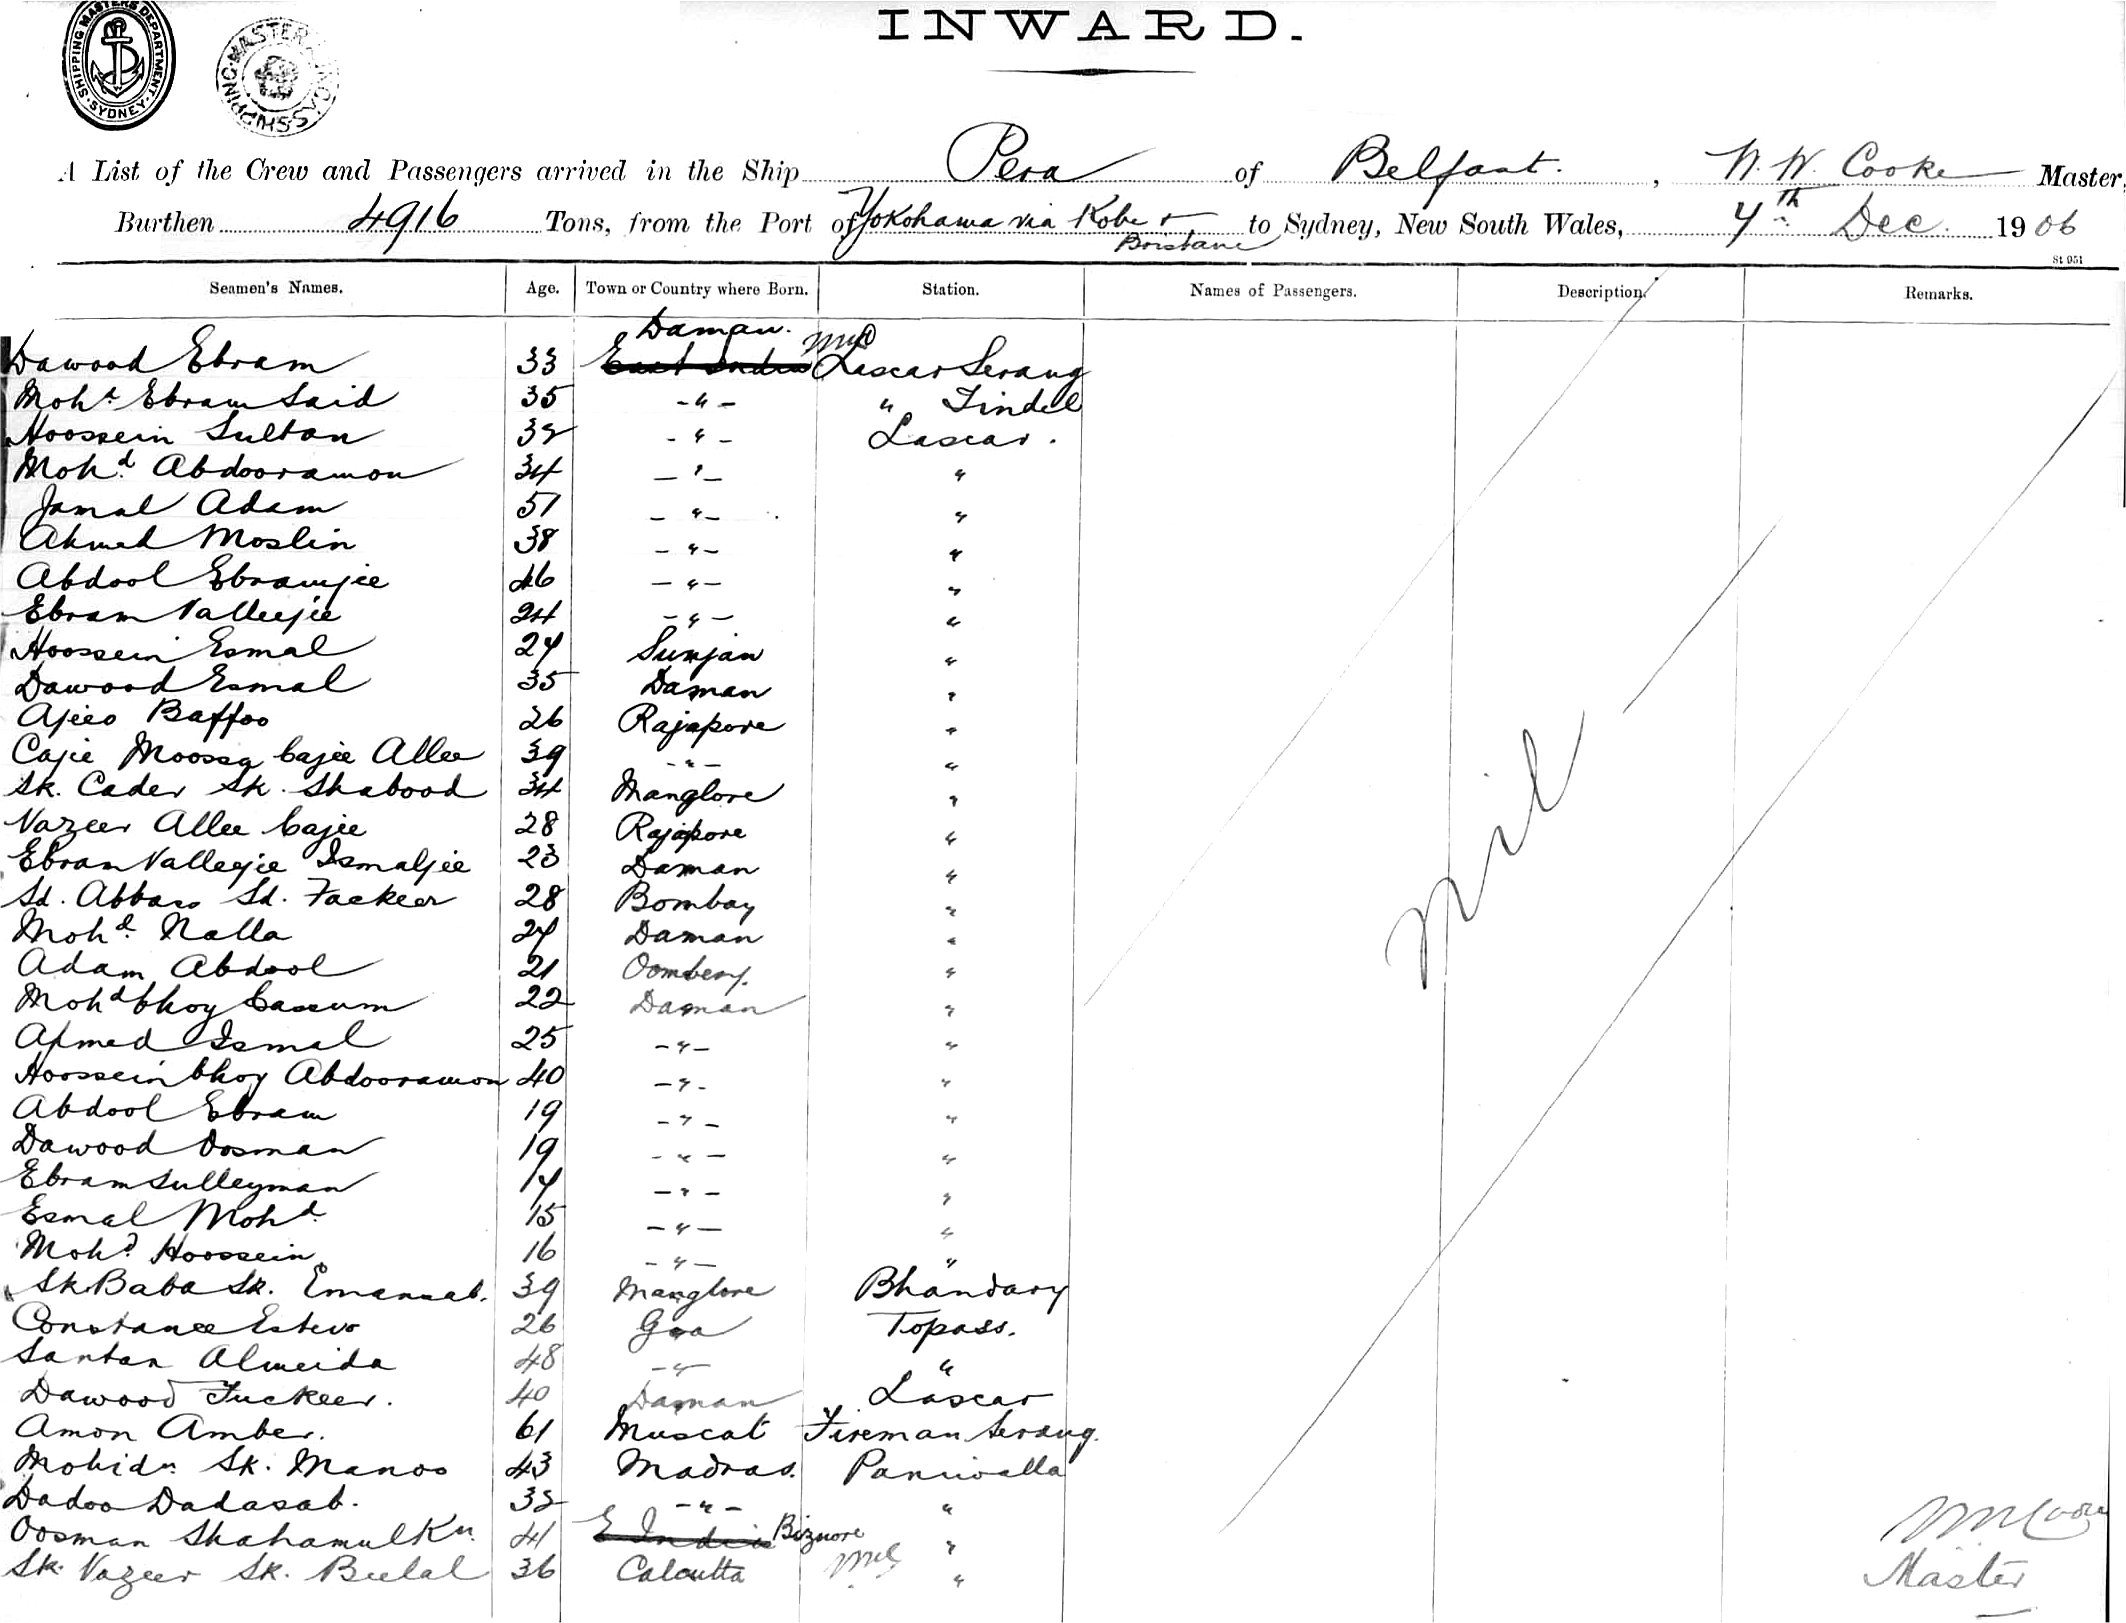 SHIPPING MASTERS DEPARTMENT · SYDNEY ·
INWARD.
A List of the Crew and Passengers arrived in the Ship Pera of Belfast. , W. W. Cooke Master,
Burthen 4916 Tons, from the Port of Yokohama via Kobe + Brisbane to Sydney, New South Wales, 7th Dec. 1906
St 951
Seamen's Names. Age. Town or Country where Born. Station. Names of Passengers. Description. Remarks.
Daman.
Dawood Ebram 33 East Indies Lascar Serang
Mohd Ebram Said 35 -"- " Tindel
Hoossein Sultan 32 -"- Lascar.
Mohd. Abdooramon 34 -"- "
Jamal Adam 51 -"- "
Ahmed Moslin 38 -"- "
Abdool Ebramjee 46 -"- "
Ebram Valleejee 24 -"- "
Hoossein Esmal 27 Sunjan "
Dawood Esmal 35 Daman "
Baffoo 26 Rajapore "
Cajie Moossa Cajee Allee 39 -"- "
Sk. Cader Sk. Shabood 34 Manglore "
Nazeer Allee Cajee 28 Rajapore "
Ebram Valleejee Ismaljee 23 Daman "
Sd. Abbas Sd. Fackeer 28 Bombay "
Mohd. Nalla 27 Daman "
Adam Abdool 21 "
Mohdbhoy Cassum 22 Daman "
Ahmed Ismal 25 -"- "
Hoosseinbhoy Abdooramon 40 -"- "
Abdool Ebram 19 -"- "
Dawood Oosman 19 -"- "
Ebram Sulleyman 17 -"- "
Esmal Mohd. 15 -"- "
Mohd. Hoossein 16 -"- "
Sk Baba Sk. Emamsab. 39 Manglore Bhandary
Constance Estevo 26 Goa Topass.
Santan Almeida 48 -"- "
Dawood Fuckeer. 40 Daman Lascar
Amon Amber. 61 Muscat Fireman Serang.
Mohidn. Sk. Manoo 43 Madras. Paniwalla
Dadoo Dadasab. 32 -"- "
Oosman Shahamulkn. 41 E Indies Biznore "
Sk. Nazeer Sk. Beelal 36 Calcutta "
Nil
Cooke
Master